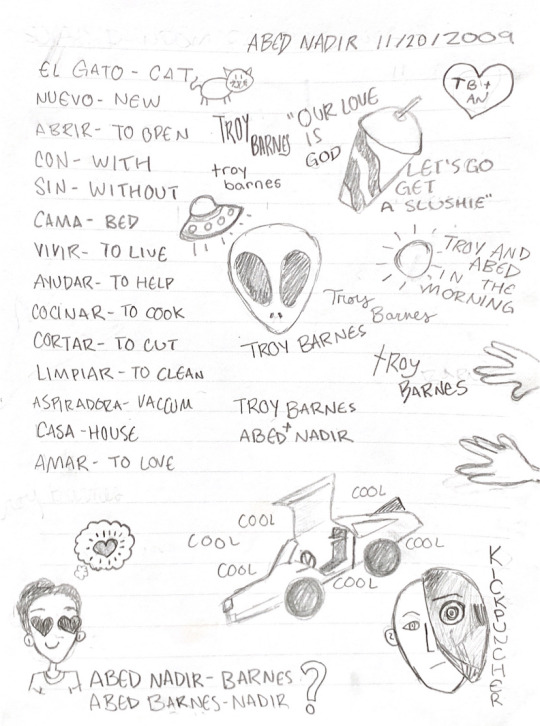 ABED NADIR 11/20/2009
EL GATO - CAT
NUEVO - NEW
ABRIR - TO OPEN
CON - WITH
SIN - WITHOUT
CAMA - BED
VIVIR - TO LIVE
AYUDAR - TO HELP
COCINAR - TO COOK
CORTAR - TO CUT
LIMPIAR - TO CLEAN
ASPIRADORA - VACCUM
CASA - HOUSE
AMAR - TO LOVE
TB +
AN
TROY
BARNES
"OUR LOVE
IS
GOD
LET'S GO
GET
A SLUSHIE"
troy
barnes
TROY AND
ABED
IN THE
MORNING
Troy
Barnes
TROY BARNES
tROY
BARNES
TROY BARNES
+
ABED NADIR
COOL
COOL
COOL
COOL
COOL
COOL
KICKPUNCHER
ABED NADIR - BARNES
ABED BARNES - NADIR ?